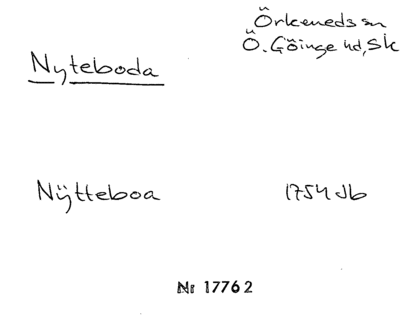 Örkeneds sn
Ö. Göinge hd, Sk
Nyteboda
Nÿtteboa 1754 Jb
Nr 17762